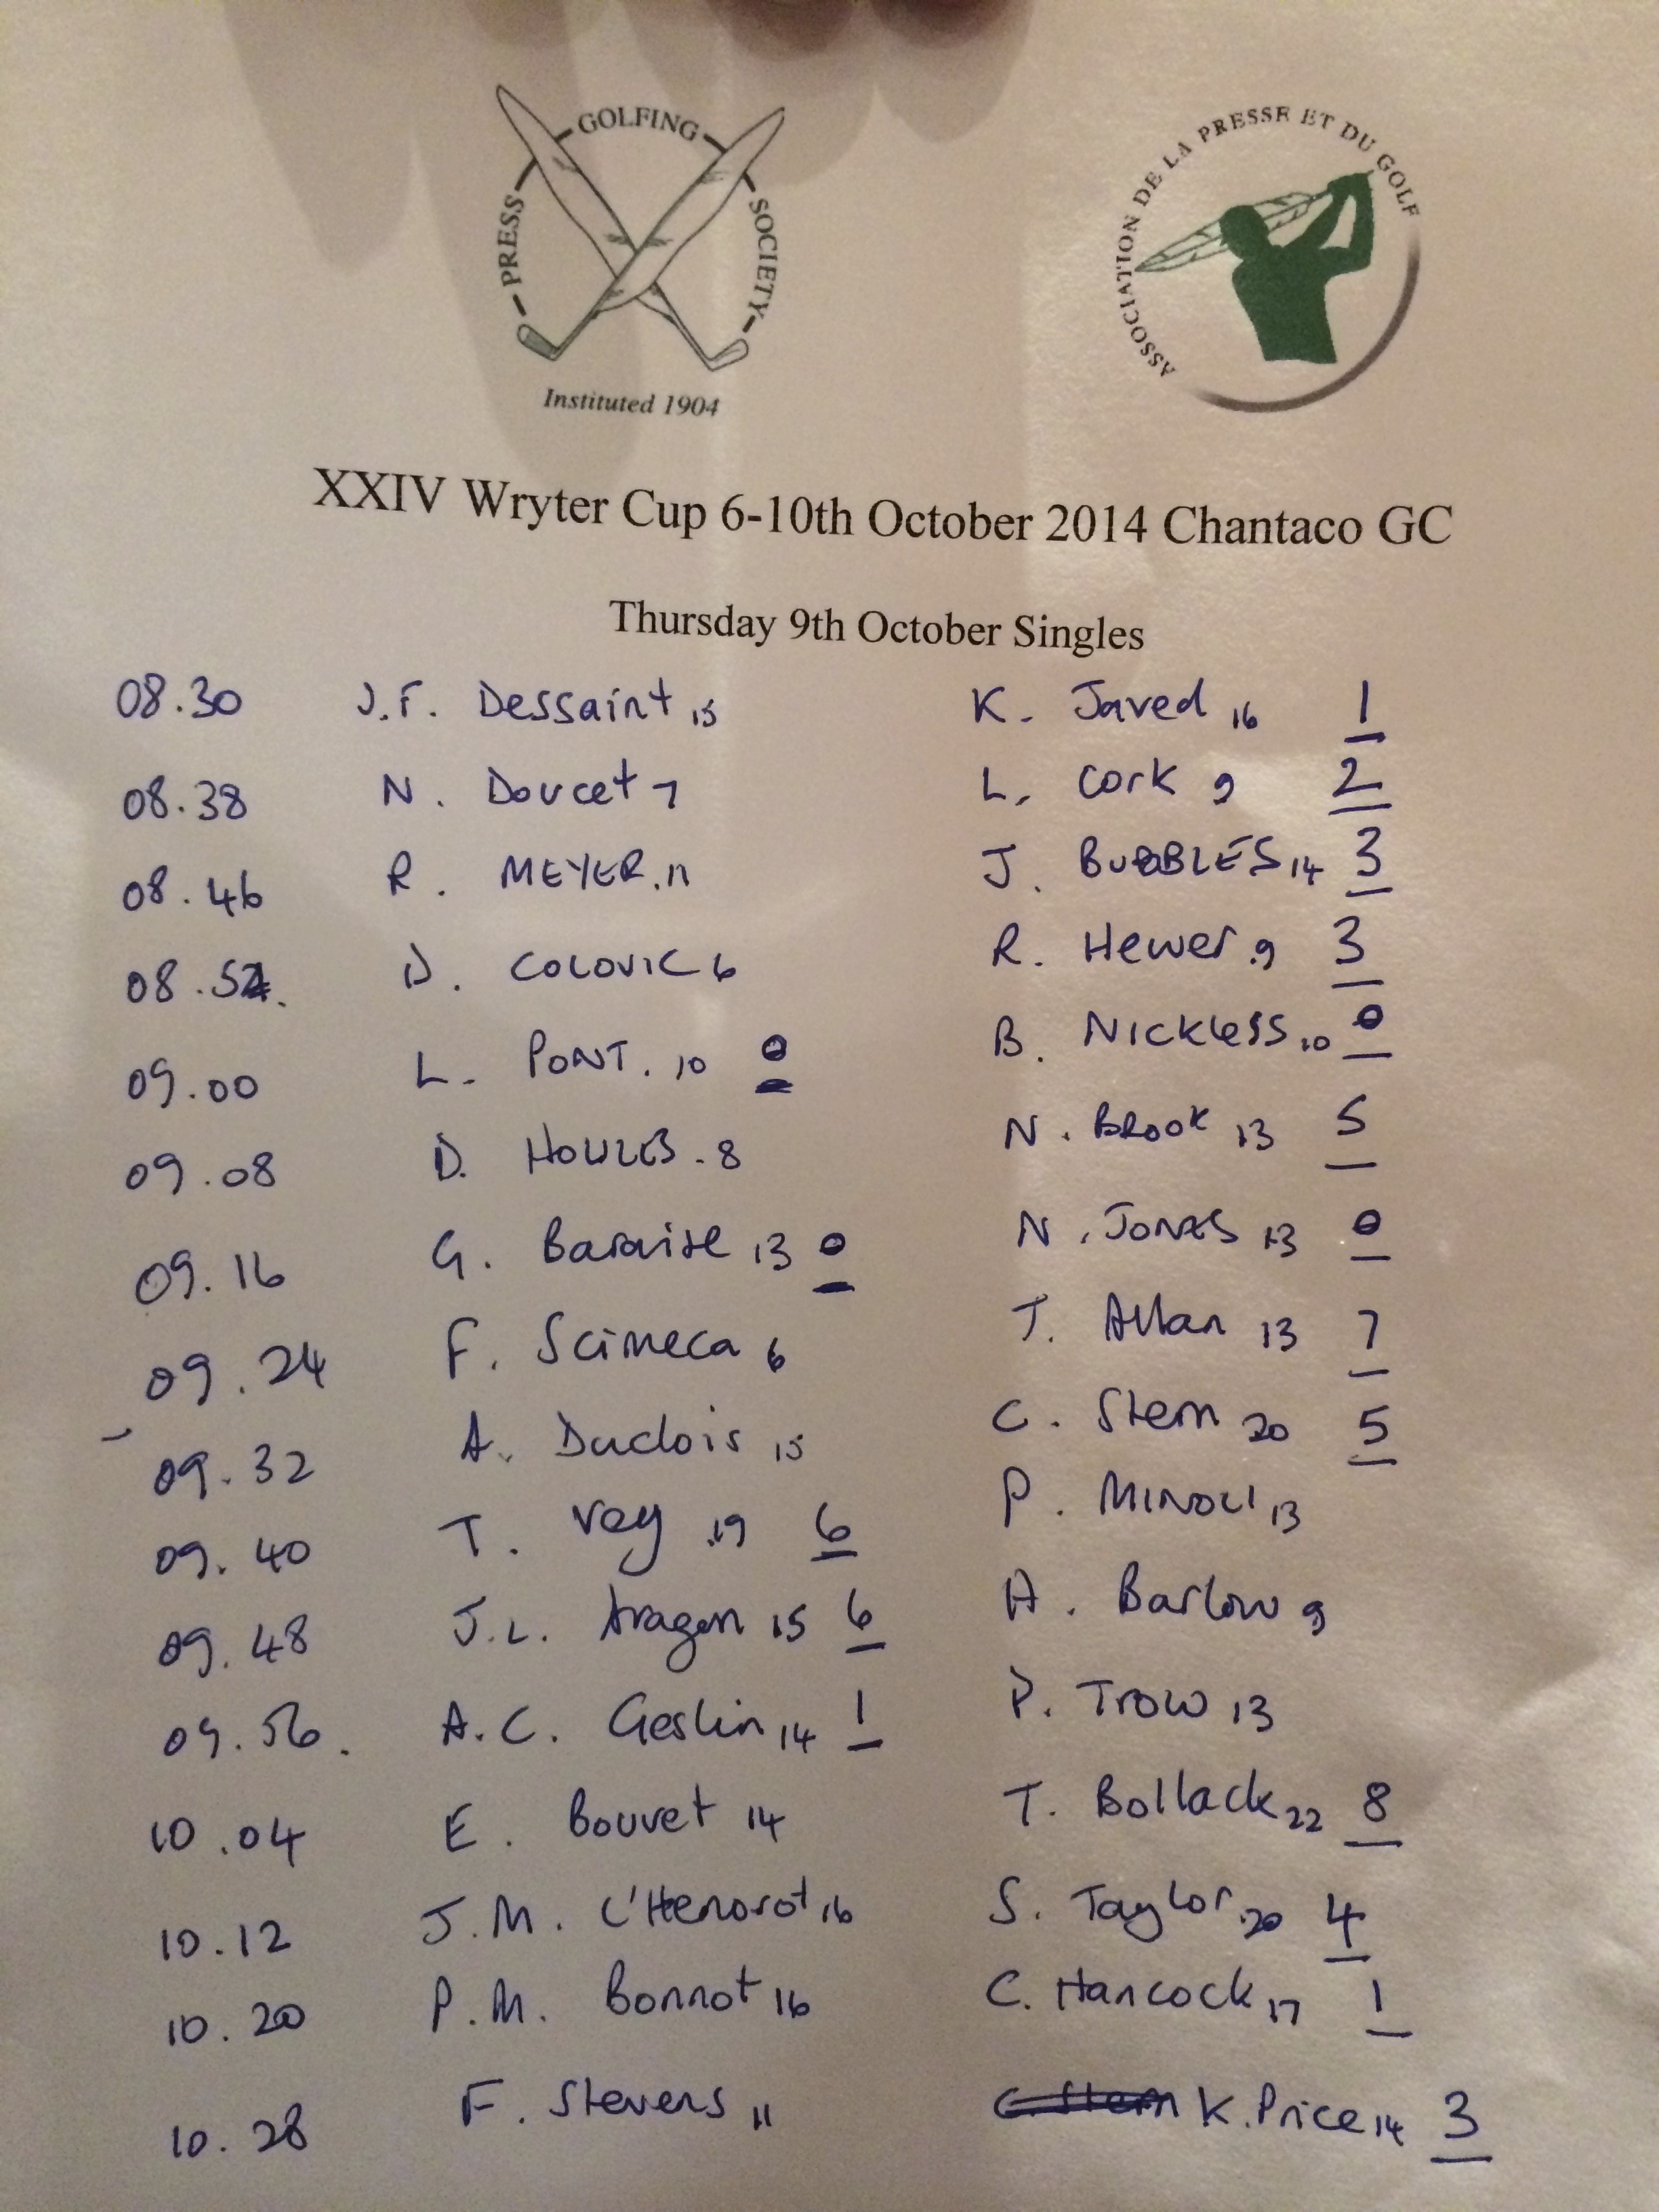 PRESS GOLFING SOCIETY
Instituted 1904
ASSOCIATION DE LA PRESSE ET DU GOLF
XXIV Wryter Cup 6-10th October 2014 Chantaco GC
Thursday 9th October Singles
08.30 J.F. Dessaint 15 K. Javed 16 1
08.38 N. Doucet 7 L. Cork 9 2
08.46 R. MEYER. 11 J. BUBBLES 14 3
08.54. D. COLOVIC 6 R. Hewer 9 3
09.00 L. PONT. 10 0 B. NICKLESS 10 0
09.08 D. 8 N. BROOK 13 5
09.16 G. 13 0 N. JONES 13 0
09.24 F. Scimeca 6 T. Allan 13 7
09.32 A. Duclois 15 C. Stern 20 5
09.40 T. Vey 19 6 P. MINOLI 13
09.48 J.L. Aragon 15 6 A. Barlow 9
09.56. A.C. Geslin 14 1 P. TROW 13
10.04 E. Bouvet 14 T. Bollack 22 8
10.12 J.M. L'Henoret 16 S. Taylor 20 4
10.20 P.M. Bonnot 16 C. Hancock 17 1
10.28 F. Stevens 11 C. Stern K. Price 14 3